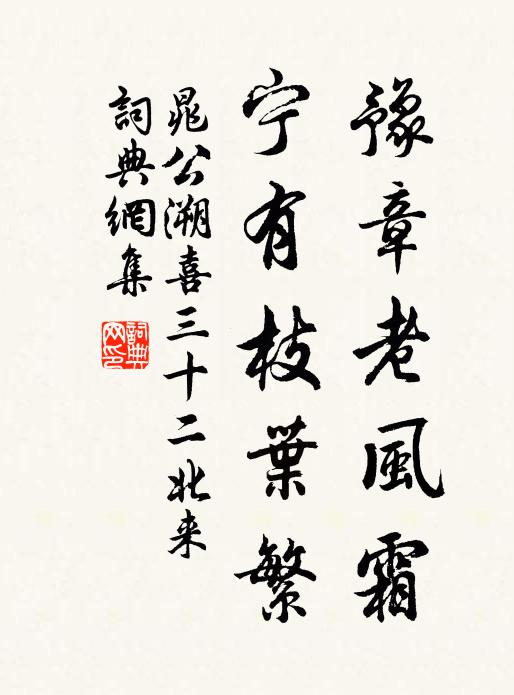 豫章老風霜
宁有枝葉繁
晁公溯喜三十二北来
詞典網集
詞典网印